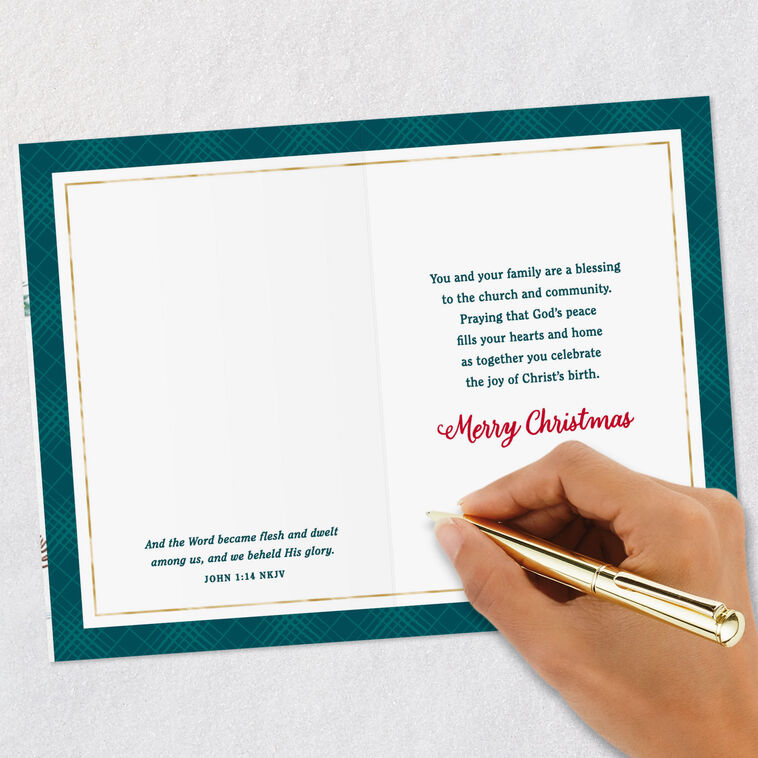 And the Word became flesh and dwelt
among us, and we beheld His glory.
JOHN 1:14 NKJV
You and your family are a blessing
to the church and community.
Praying that God's peace
fills your hearts and home
as together you celebrate
the joy of Christ's birth.
Merry Christmas